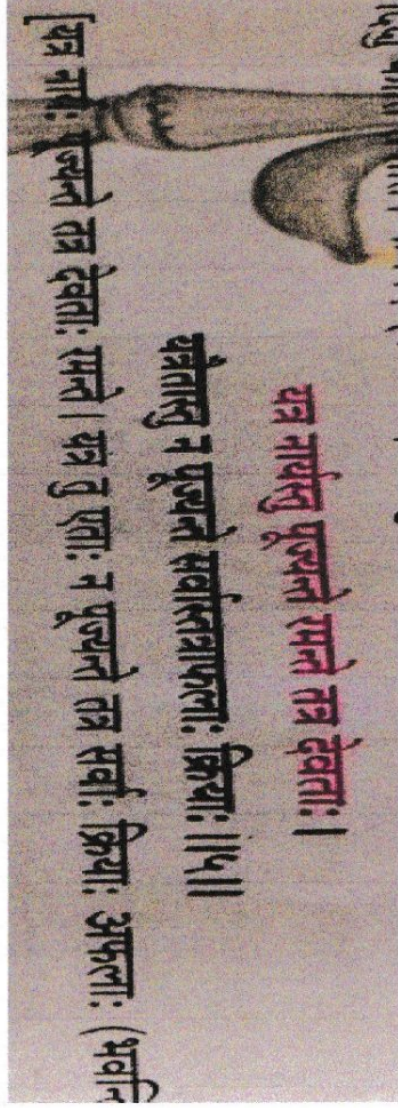 यत्र नार्यस्तु पूज्यन्ते रमन्ते तत्र देवताः ।
यत्रैतास्तु न पूज्यन्ते सर्वास्तत्राफलाः क्रियाः ॥५॥
[यत्र नार्यः पूज्यन्ते तत्र देवताः रमन्ते । यत्र तु एताः न पूज्यन्ते तत्र सर्वाः क्रियाः अफलाः